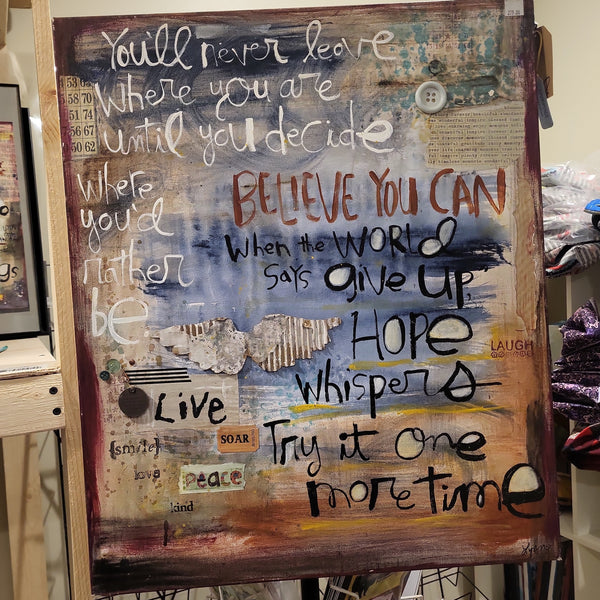 You'll never leave
where you are
until you decide
where
you'd
rather
be.
58 70
51 74
56 67
50 62
BELIEVE YOU CAN
When the WORLD
says give up,
HOPE
whispers
Try it one
more time
LAUGH
Live
SOAR
{smile}
love
peace
kind
gs